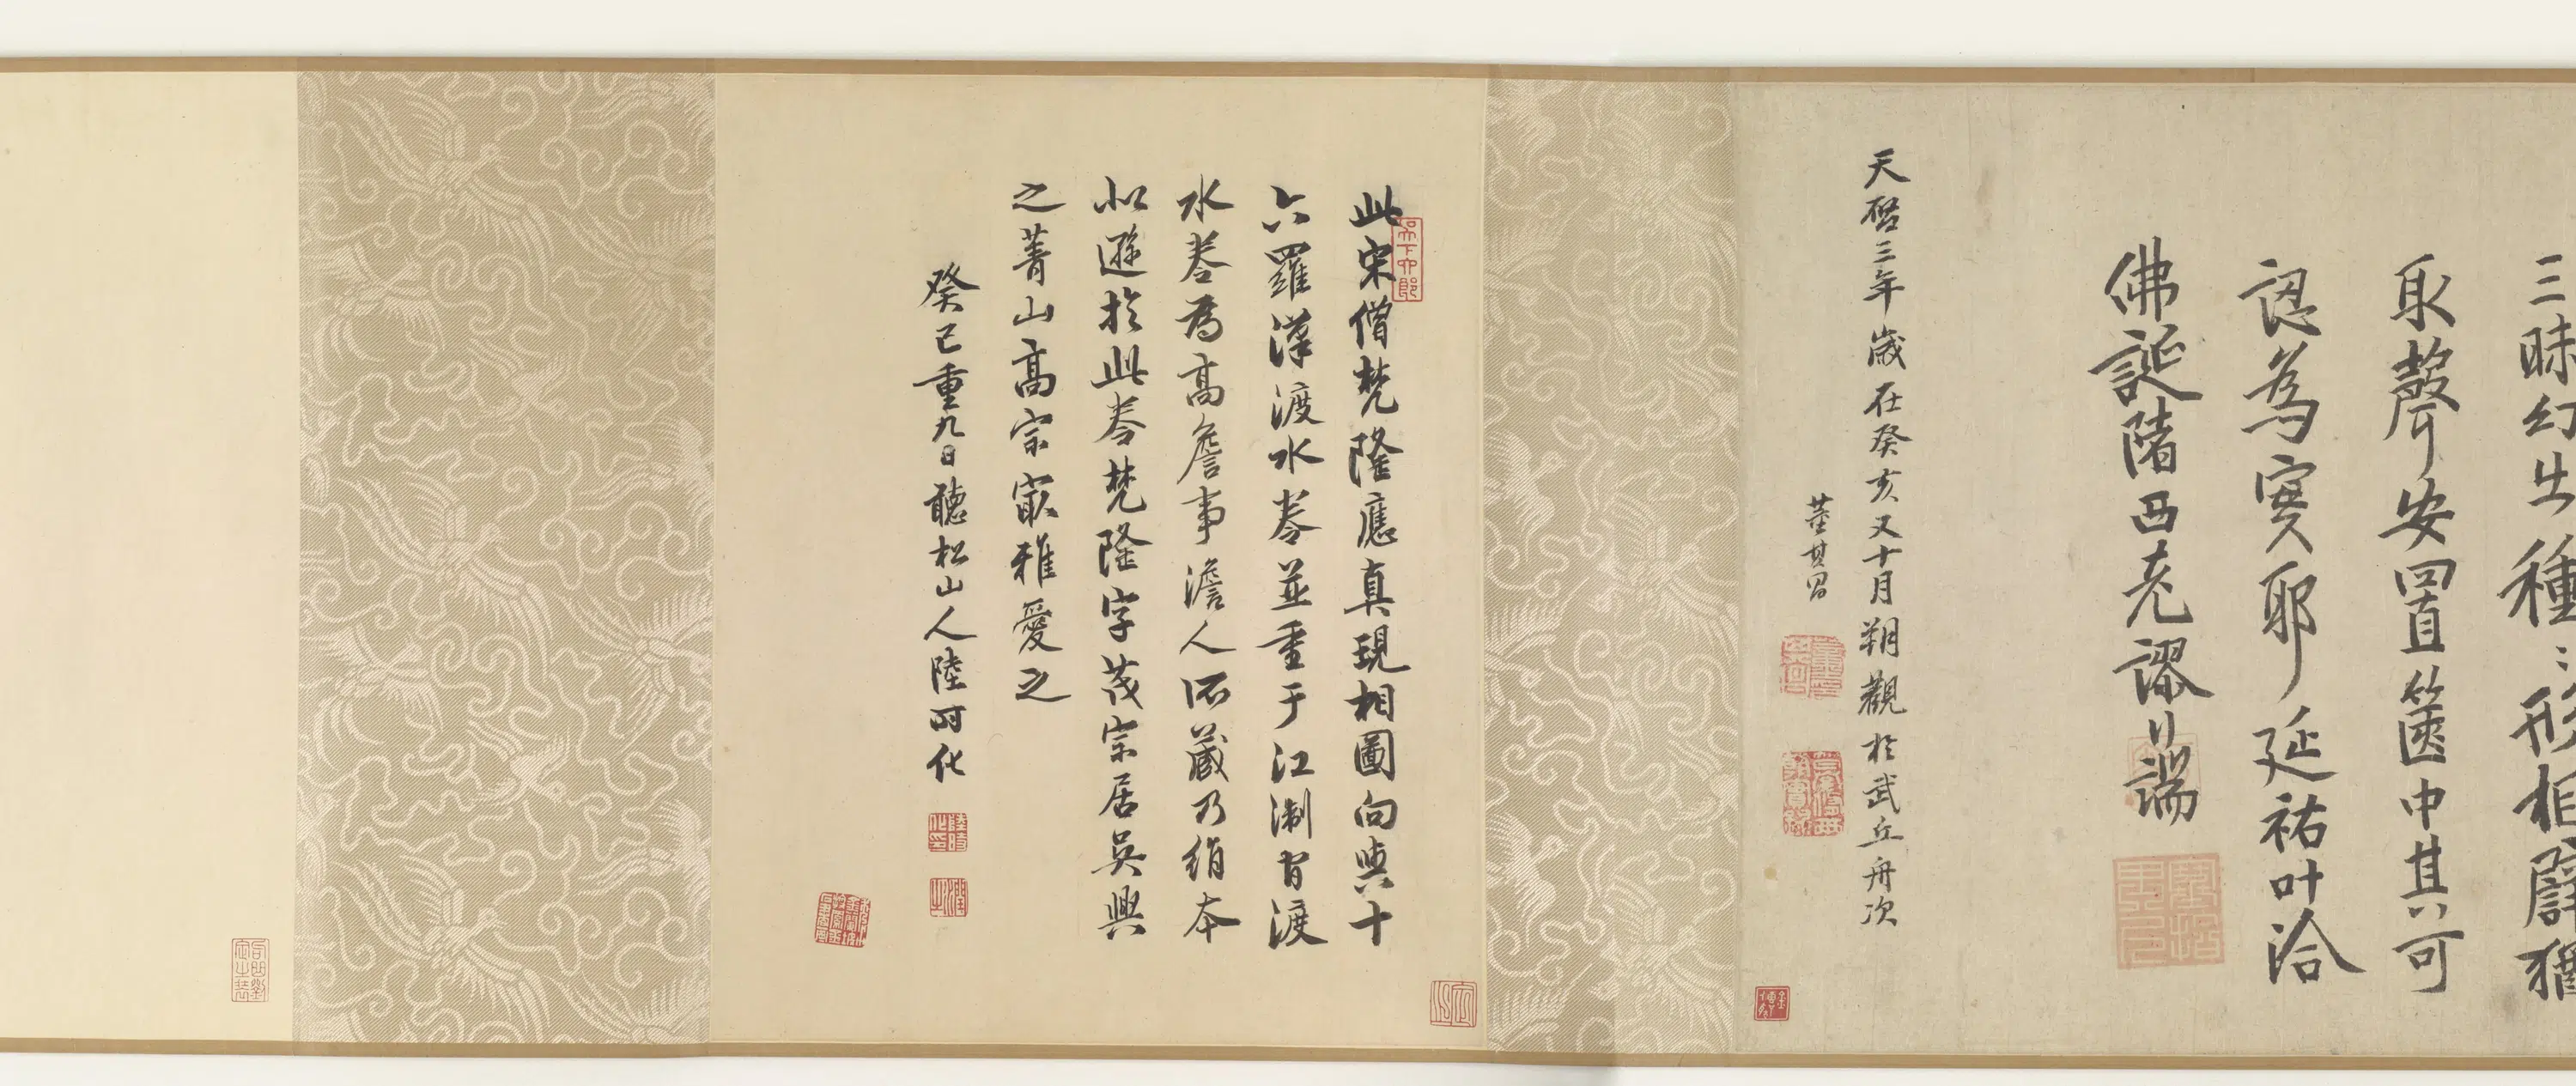 三昧幻出種〻形相醫猶
取聲安置篋中其可
認為實耶延祐叶洽
佛誕階西老謬月端
天啓三年歲在癸亥又十月朔觀於武丘舟次
董其昌
此宋僧梵隆應真現相圖向與十
六羅漢渡水卷並重于江淛曾渡
水卷為高詹事澹人所藏乃絹本
似遜於此卷梵隆字茂宗居吳興
之菁山高宗㝡雅愛之
癸巳重九日聽松山人陸時化
陸時化印
潤之
吳下阿郎